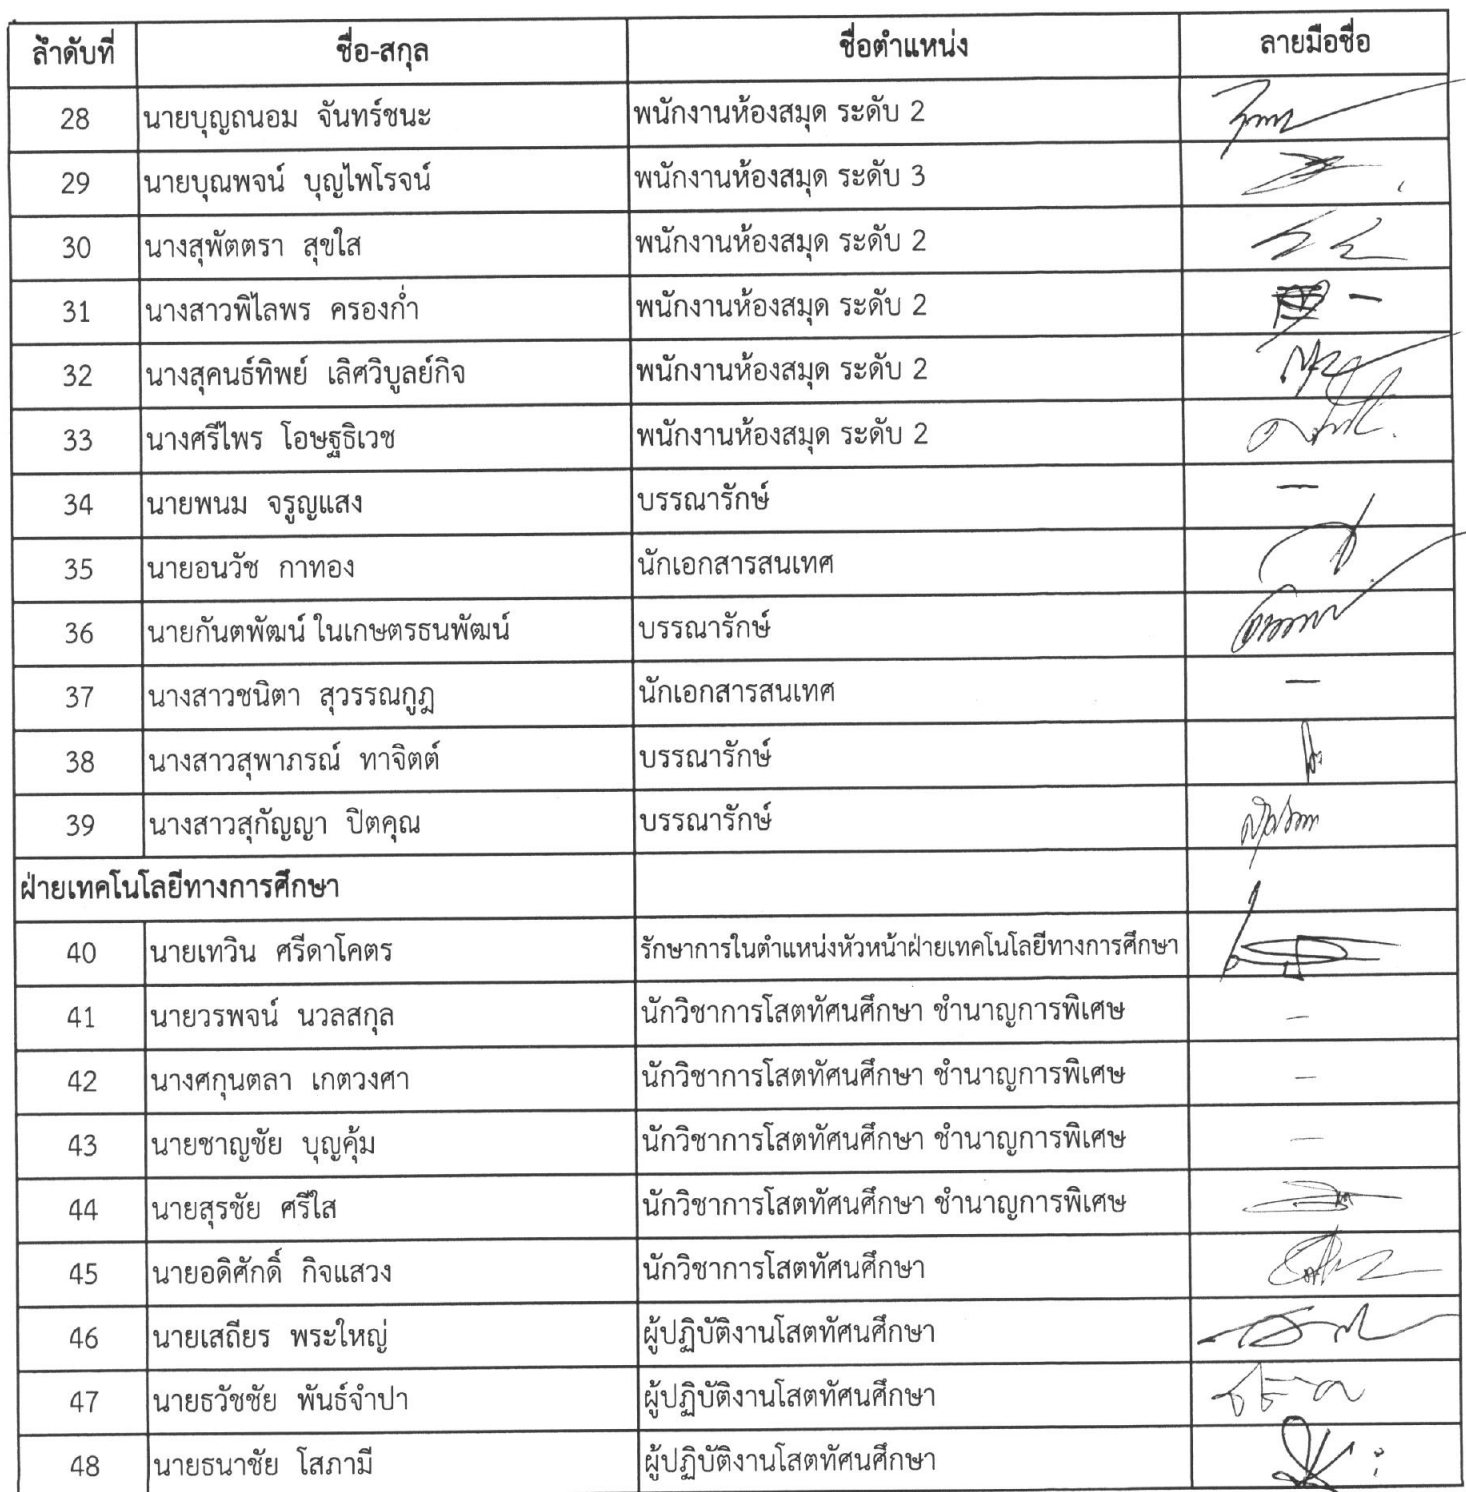 ลำดับที่ ชื่อ-สกุล ชื่อตำแหน่ง ลายมือชื่อ
28 นายบุญถนอม จันทร์ชนะ พนักงานห้องสมุด ระดับ 2
29 นายบุณพจน์ บุญไพโรจน์ พนักงานห้องสมุด ระดับ 3
30 นางสุพัตตรา สุขใส พนักงานห้องสมุด ระดับ 2
31 นางสาวพิไลพร ครองก่ำ พนักงานห้องสมุด ระดับ 2
32 นางสุคนธ์ทิพย์ เลิศวิบูลย์กิจ พนักงานห้องสมุด ระดับ 2
33 นางศรีไพร โอษฐธิเวช พนักงานห้องสมุด ระดับ 2
34 นายพนม จรูญแสง บรรณารักษ์ –
35 นายอนวัช กาทอง นักเอกสารสนเทศ
36 นายกันตพัฒน์ ในเกษตรธนพัฒน์ บรรณารักษ์
37 นางสาวชนิตา สุวรรณกูฏ นักเอกสารสนเทศ –
38 นางสาวสุพาภรณ์ ทาจิตต์ บรรณารักษ์
39 นางสาวสุกัญญา ปิตคุณ บรรณารักษ์
ฝ่ายเทคโนโลยีทางการศึกษา
40 นายเทวิน ศรีดาโคตร รักษาการในตำแหน่งหัวหน้าฝ่ายเทคโนโลยีทางการศึกษา
41 นายวรพจน์ นวลสกุล นักวิชาการโสตทัศนศึกษา ชำนาญการพิเศษ –
42 นางศกุนตลา เกตวงศา นักวิชาการโสตทัศนศึกษา ชำนาญการพิเศษ –
43 นายชาญชัย บุญคุ้ม นักวิชาการโสตทัศนศึกษา ชำนาญการพิเศษ –
44 นายสุรชัย ศรีใส นักวิชาการโสตทัศนศึกษา ชำนาญการพิเศษ
45 นายอดิศักดิ์ กิจแสวง นักวิชาการโสตทัศนศึกษา
46 นายเสถียร พระใหญ่ ผู้ปฏิบัติงานโสตทัศนศึกษา
47 นายธวัชชัย พันธ์จำปา ผู้ปฏิบัติงานโสตทัศนศึกษา
48 นายธนาชัย โสภามี ผู้ปฏิบัติงานโสตทัศนศึกษา